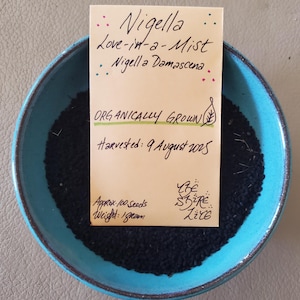 Nigella
Love-in-a-Mist
Nigella Damascena
ORGANICALLY GROWN
Harvested: 9 August 2025
Approx 100 seeds
Weight: 1 gram